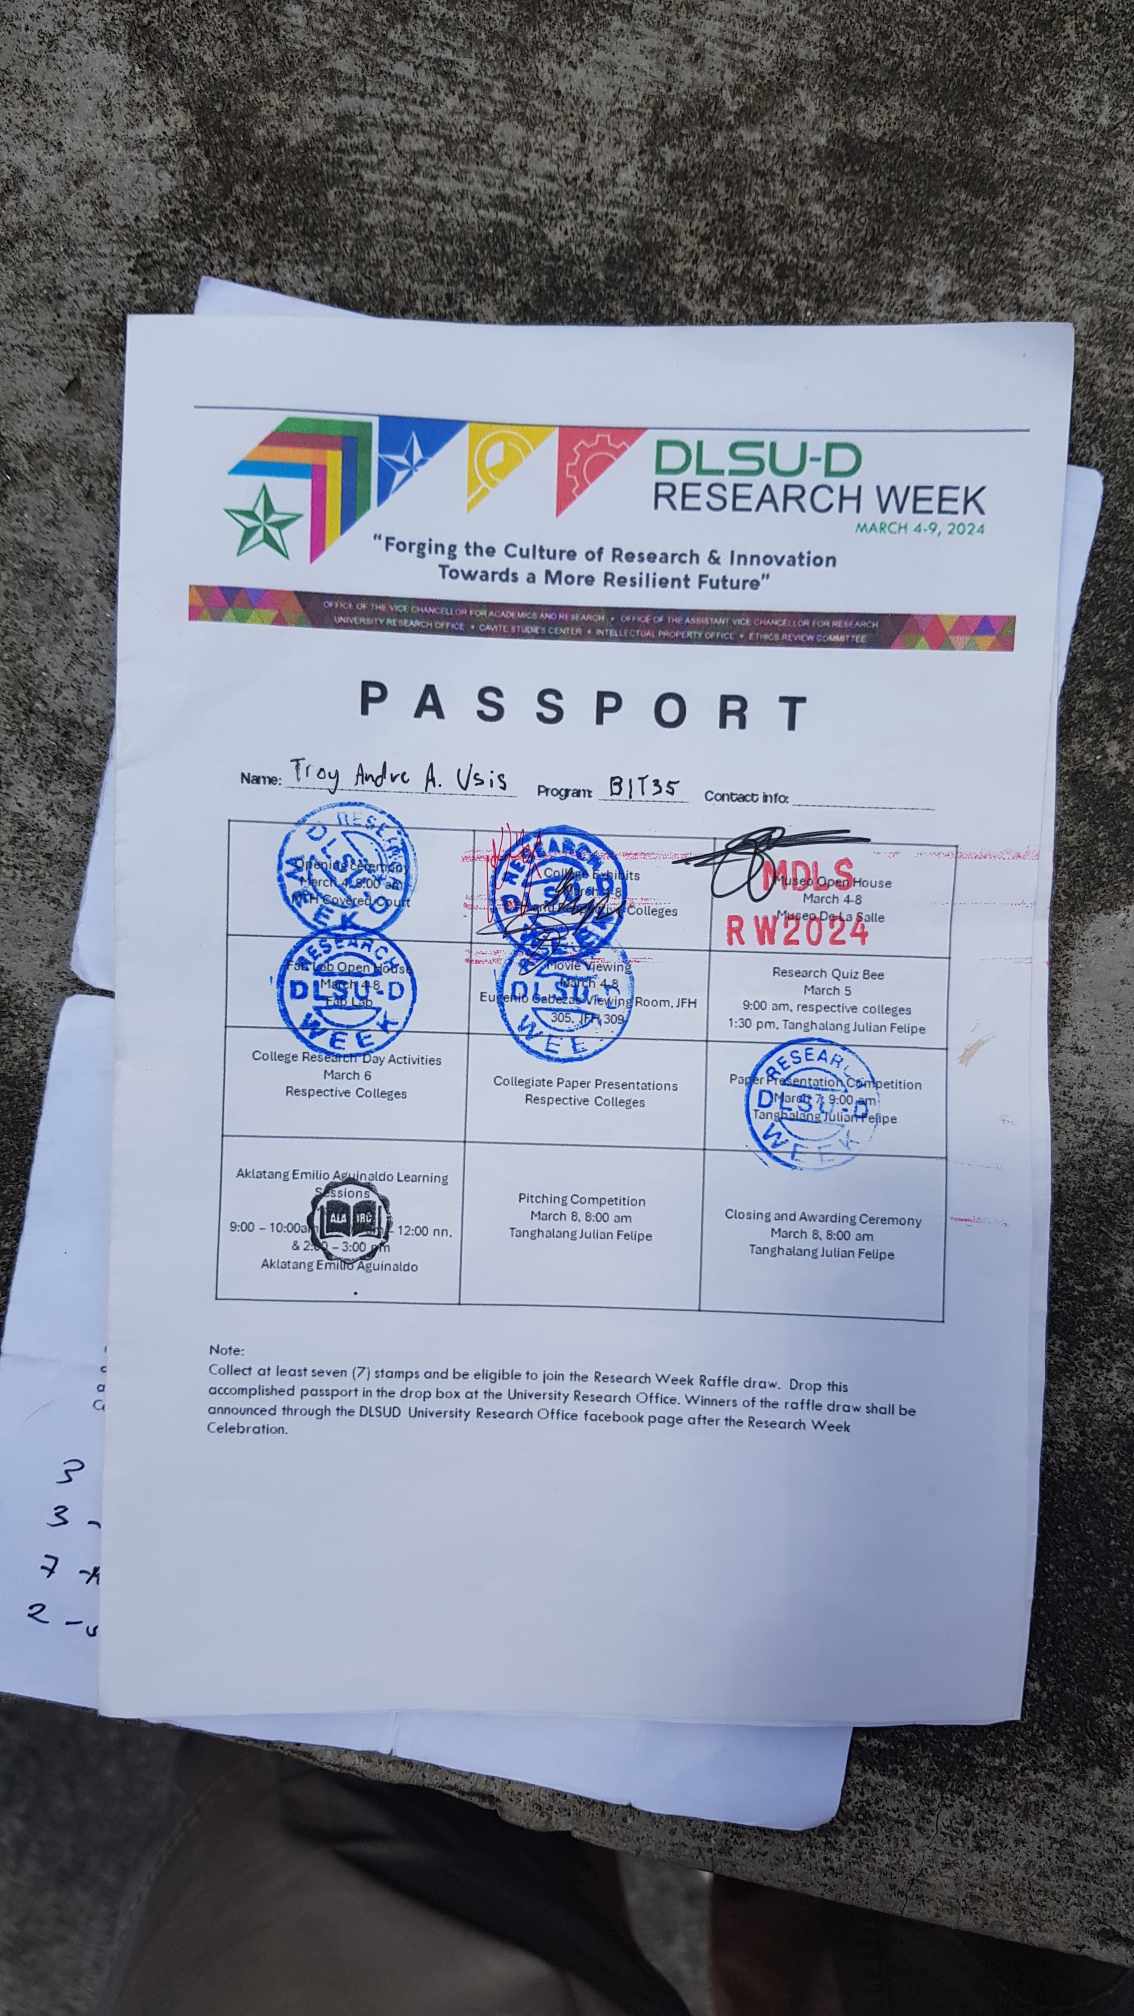 DLSU-D
RESEARCH WEEK
MARCH 4-9, 2024
"Forging the Culture of Research & Innovation
Towards a More Resilient Future"
OFFICE OF THE VICE CHANCELLOR FOR ACADEMICS AND RESEARCH • OFFICE OF THE ASSISTANT VICE CHANCELLOR FOR RESEARCH
UNIVERSITY RESEARCH OFFICE • CAVITE STUDIES CENTER • INTELLECTUAL PROPERTY OFFICE • ETHICS REVIEW COMMITTEE
PASSPORT
Name: Troy Andre A. Usis Program: BIT35 Contact info:
Opening ceremony
March 4, 8:00 am
Covered Court
RESEARCH
DLSU-D
WEEK
College Exhibits
March 4-8
Colleges
MDLS
Museo Open House
March 4-8
Museo De La Salle
RW2024
RESEARCH
DLSU-D
WEEK
Fab Lab Open House
March 4-8
Fab Lab
Movie Viewing
March 4-8
Eugenio Cabezas Viewing Room, JFH
305, JFH 309
DLSU-D
WEEK
Research Quiz Bee
March 5
9:00 am, respective colleges
1:30 pm, Tanghalang Julian Felipe
College Research Day Activities
March 6
Respective Colleges
Collegiate Paper Presentations
Respective Colleges
RESEARCH
DLSU-D
WEEK
Paper Presentation Competition
March 7, 9:00 am
Tanghalang Julian Felipe
Aklatang Emilio Aguinaldo Learning
Sessions
9:00 – 10:00am – 12:00 nn,
& 2:00 – 3:00 pm
Aklatang Emilio Aguinaldo
ALA IRC
Pitching Competition
March 8, 8:00 am
Tanghalang Julian Felipe
Closing and Awarding Ceremony
March 8, 8:00 am
Tanghalang Julian Felipe
Note:
Collect at least seven (7) stamps and be eligible to join the Research Week Raffle draw. Drop this
accomplished passport in the drop box at the University Research Office. Winners of the raffle draw shall be
announced through the DLSUD University Research Office facebook page after the Research Week
Celebration.
3
3 -
7 -
2 -